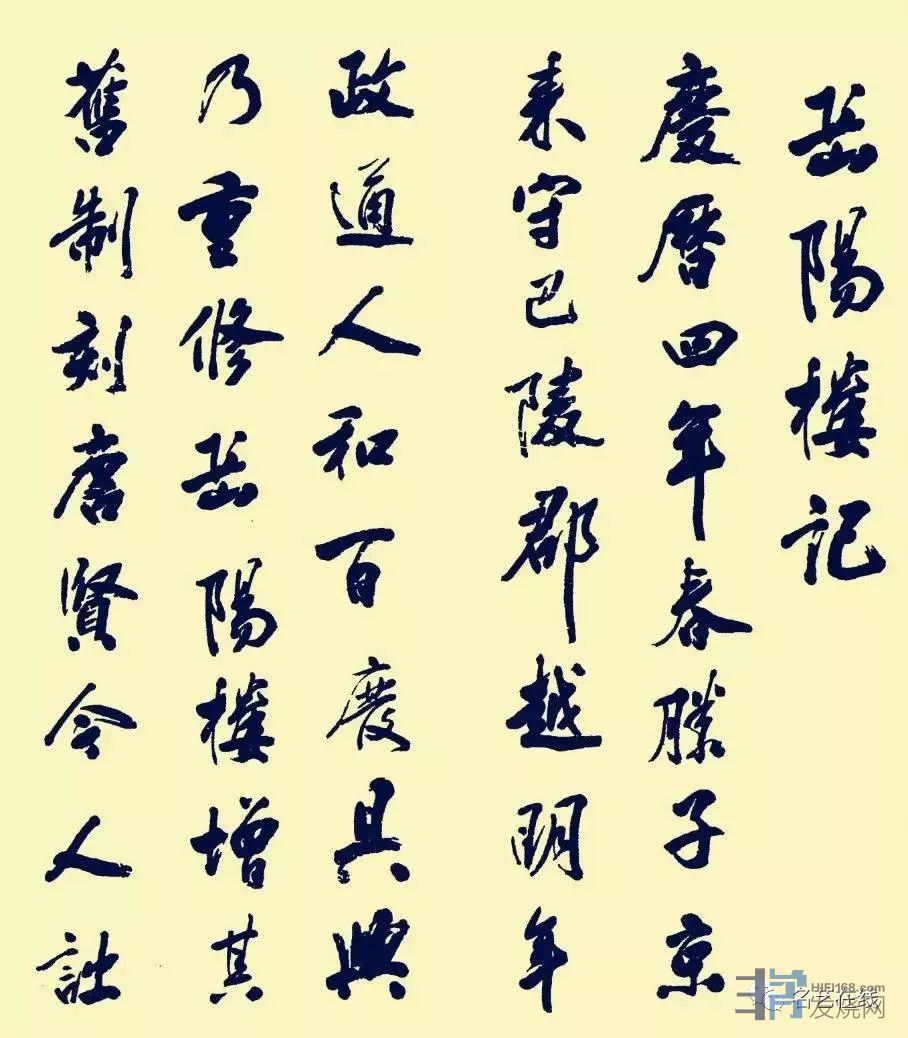 岳陽樓記
慶曆四年春滕子京
来守巴陵郡越明年
政通人和百廢具興
乃重修岳陽樓增其
舊制刻唐賢今人詩
HIFI168.com
发烧网